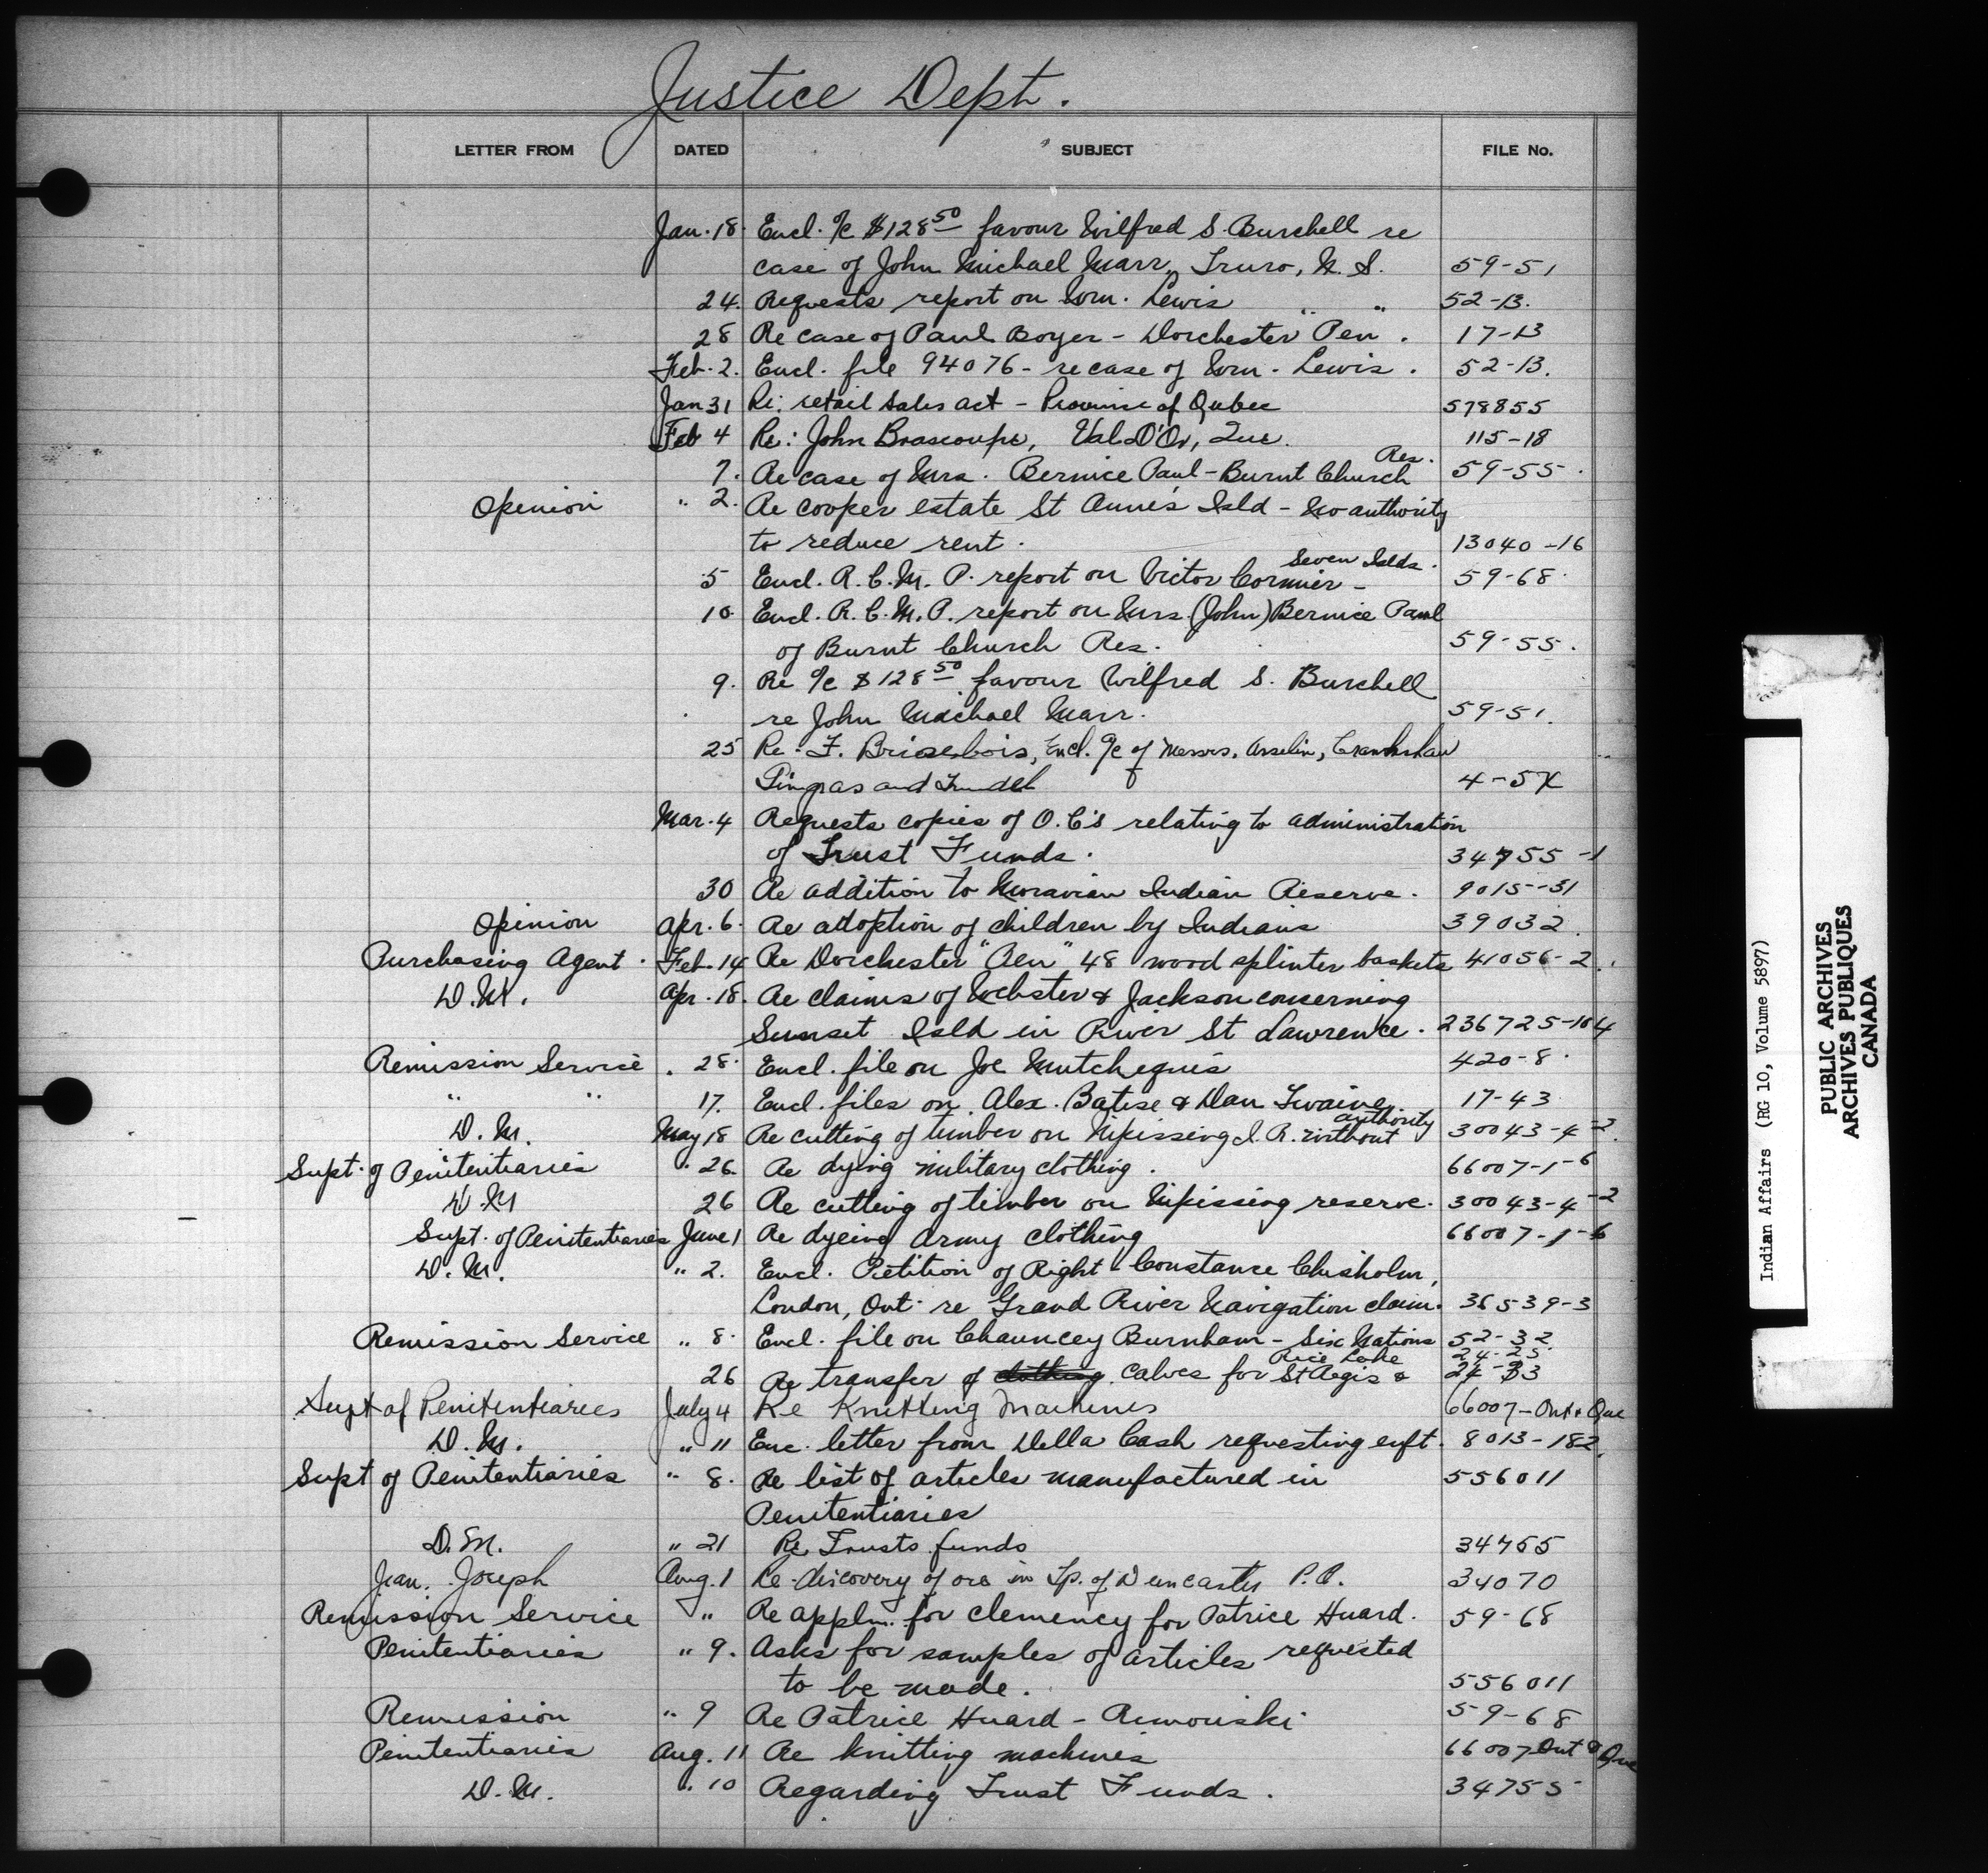 Justice Dept.
LETTER FROM DATED SUBJECT FILE No.
Jan. 18. Encl. a/c $128 50 favour Wilfred S. Burchell re
case of John Michael Marr, Truro, N. S. 59-51
24. Requests report on Wm. Lewis " " 52-13.
28 Re case of Paul Boyer - Dorchester Pen. 17-13
Feb. 2. Encl. file 94076 - re case of Wm. Lewis. 52-13.
Jan 31 Re: retail sales act - Province of Qubec 578855
Feb 4 Re: John Brascoupe, Val D'Or, Que. 115-18
7. Re case of Mrs. Bernice Paul - Burnt Church Res. 59-55.
Opinion " 2. Re Cooper estate St Anne's Isld - No authority
to reduce rent. 13040-16
5 Encl. R.C.M.P. report on Victor Cormier - Seven Islds. 59-68.
10 Encl. R.C.M.P. report on Mrs. (John) Bernice Paul
of Burnt Church Res. 59-55.
9. Re a/c $128 50 favour Wilfred S. Burchell
re John Michael Marr. 59-51.
25 Re: F. Brisebois, Encl. a/c of Messrs. Asselin, Crankshaw
Gingras and Trudel 4-5
Mar. 4 Requests copies of O.C's relating to administration
of Trust Funds. 34755-1
30 Re addition to Moravian Indian Reserve. 9015-31
Opinion Apr. 6. Re adoption of children by Indians 39032.
Purchasing Agent. Feb. 14 Re Dorchester "Pen" 48 wood splinter baskets 41056-2.
D.M. Apr. 18. Re claims of Webster & Jackson concerning
Sunset Isld in River St Lawrence. 236725-104
Remission Service . 28. Encl. file on Joe Mutchequis 420-8.
" " 17. Encl. files on Alex. Batise & Dan Twaine 17-43
D.M. May 18 Re cutting of timber on Nipissing I.R. without authority 30043-4-2.
Supt. of Penitentiaries " 26. Re dying military clothing. 66007-1-6
D.M 26 Re cutting of timber on Nipissing reserve. 30043-4-2
Supt. of Penitentiaries June 1 Re dyeing Army clothing 66007-1-6
D.M. " 2. Encl. Petition of Right - Constance Chisholm,
London, Ont. re Grand River Navigation claim. 36539-3
Remission Service " 8. Encl. file on Chauncey Burnham - Six Nations 52-32
26 Re transfer of clothing calves for St Regis & Rice Lake 24-25. 24-33
Supt of Penitentiaries July 4 Re Knitting Machines 66007-Ont & Que
D.M. " 11 Enc. letter from Della Cash requesting enft. 8013-182.
Supt of Penitentiaries " 8. Re list of articles manufactured in 556011
Penitentiaries
D.M. " 21 Re Trusts funds 34755
Jean. Joseph Aug. 1 Re discovery of ore in Tp. of Duncaster P.Q. 34070
Remission Service " Re appln. for clemency for Patrice Huard. 59-68
Penitentiaries " 9. Asks for samples of articles requested
to be made. 556011
Remission " 9 Re Patrice Huard - Rimouski 59-68
Penitentiaries Aug. 11 Re knitting machines 66007 Ont & Que
D.M. " 10 Regarding Trust Funds. 34755
Indian Affairs (RG 10, Volume 5897)
PUBLIC ARCHIVES
ARCHIVES PUBLIQUES
CANADA